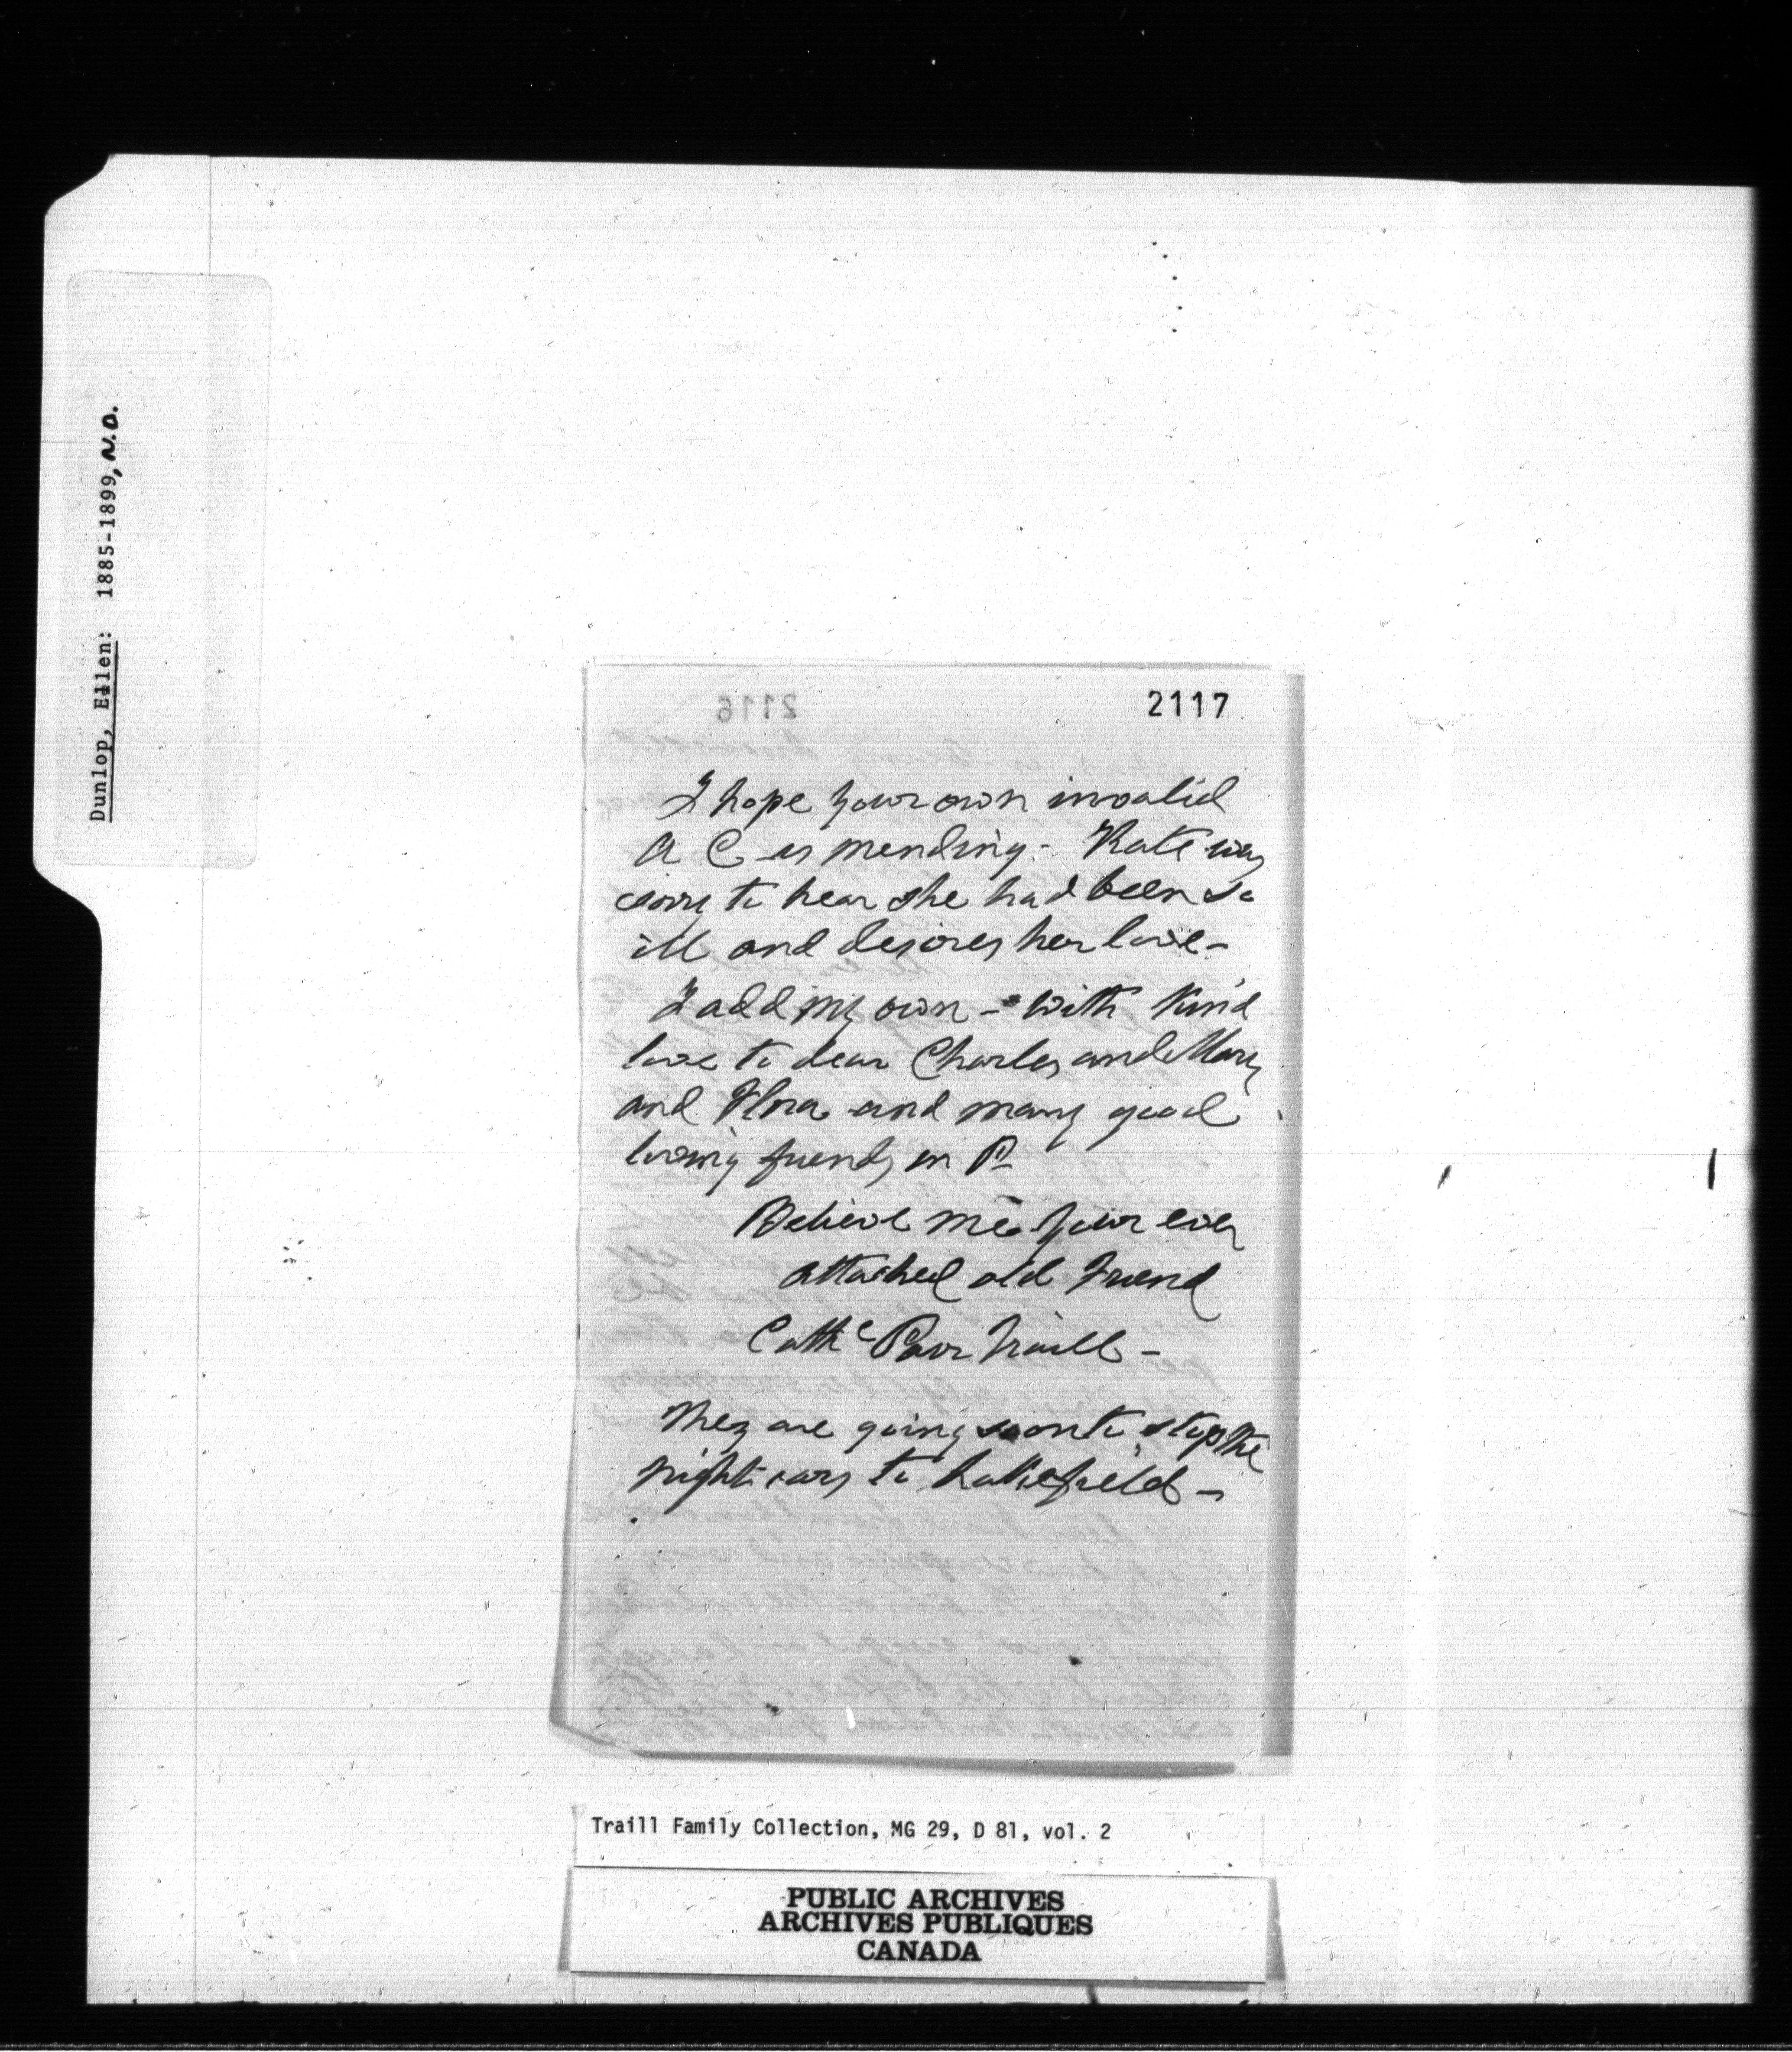 Dunlop, Ellen: 1885-1899, N.D.
2117
I hope your own invalid
A C is mending - Kate was
sorry to hear she had been so
ill and desires her love -
I add my own - with kind
love to dear Charles and Mary
and Flora and many good
loving friends in P
Believe me your ever
attached old friend
Cathe Parr Traill -
They are going soon to stop the
night cars to Lakefield -
Traill Family Collection, MG 29, D 81, vol. 2
PUBLIC ARCHIVES
ARCHIVES PUBLIQUES
CANADA